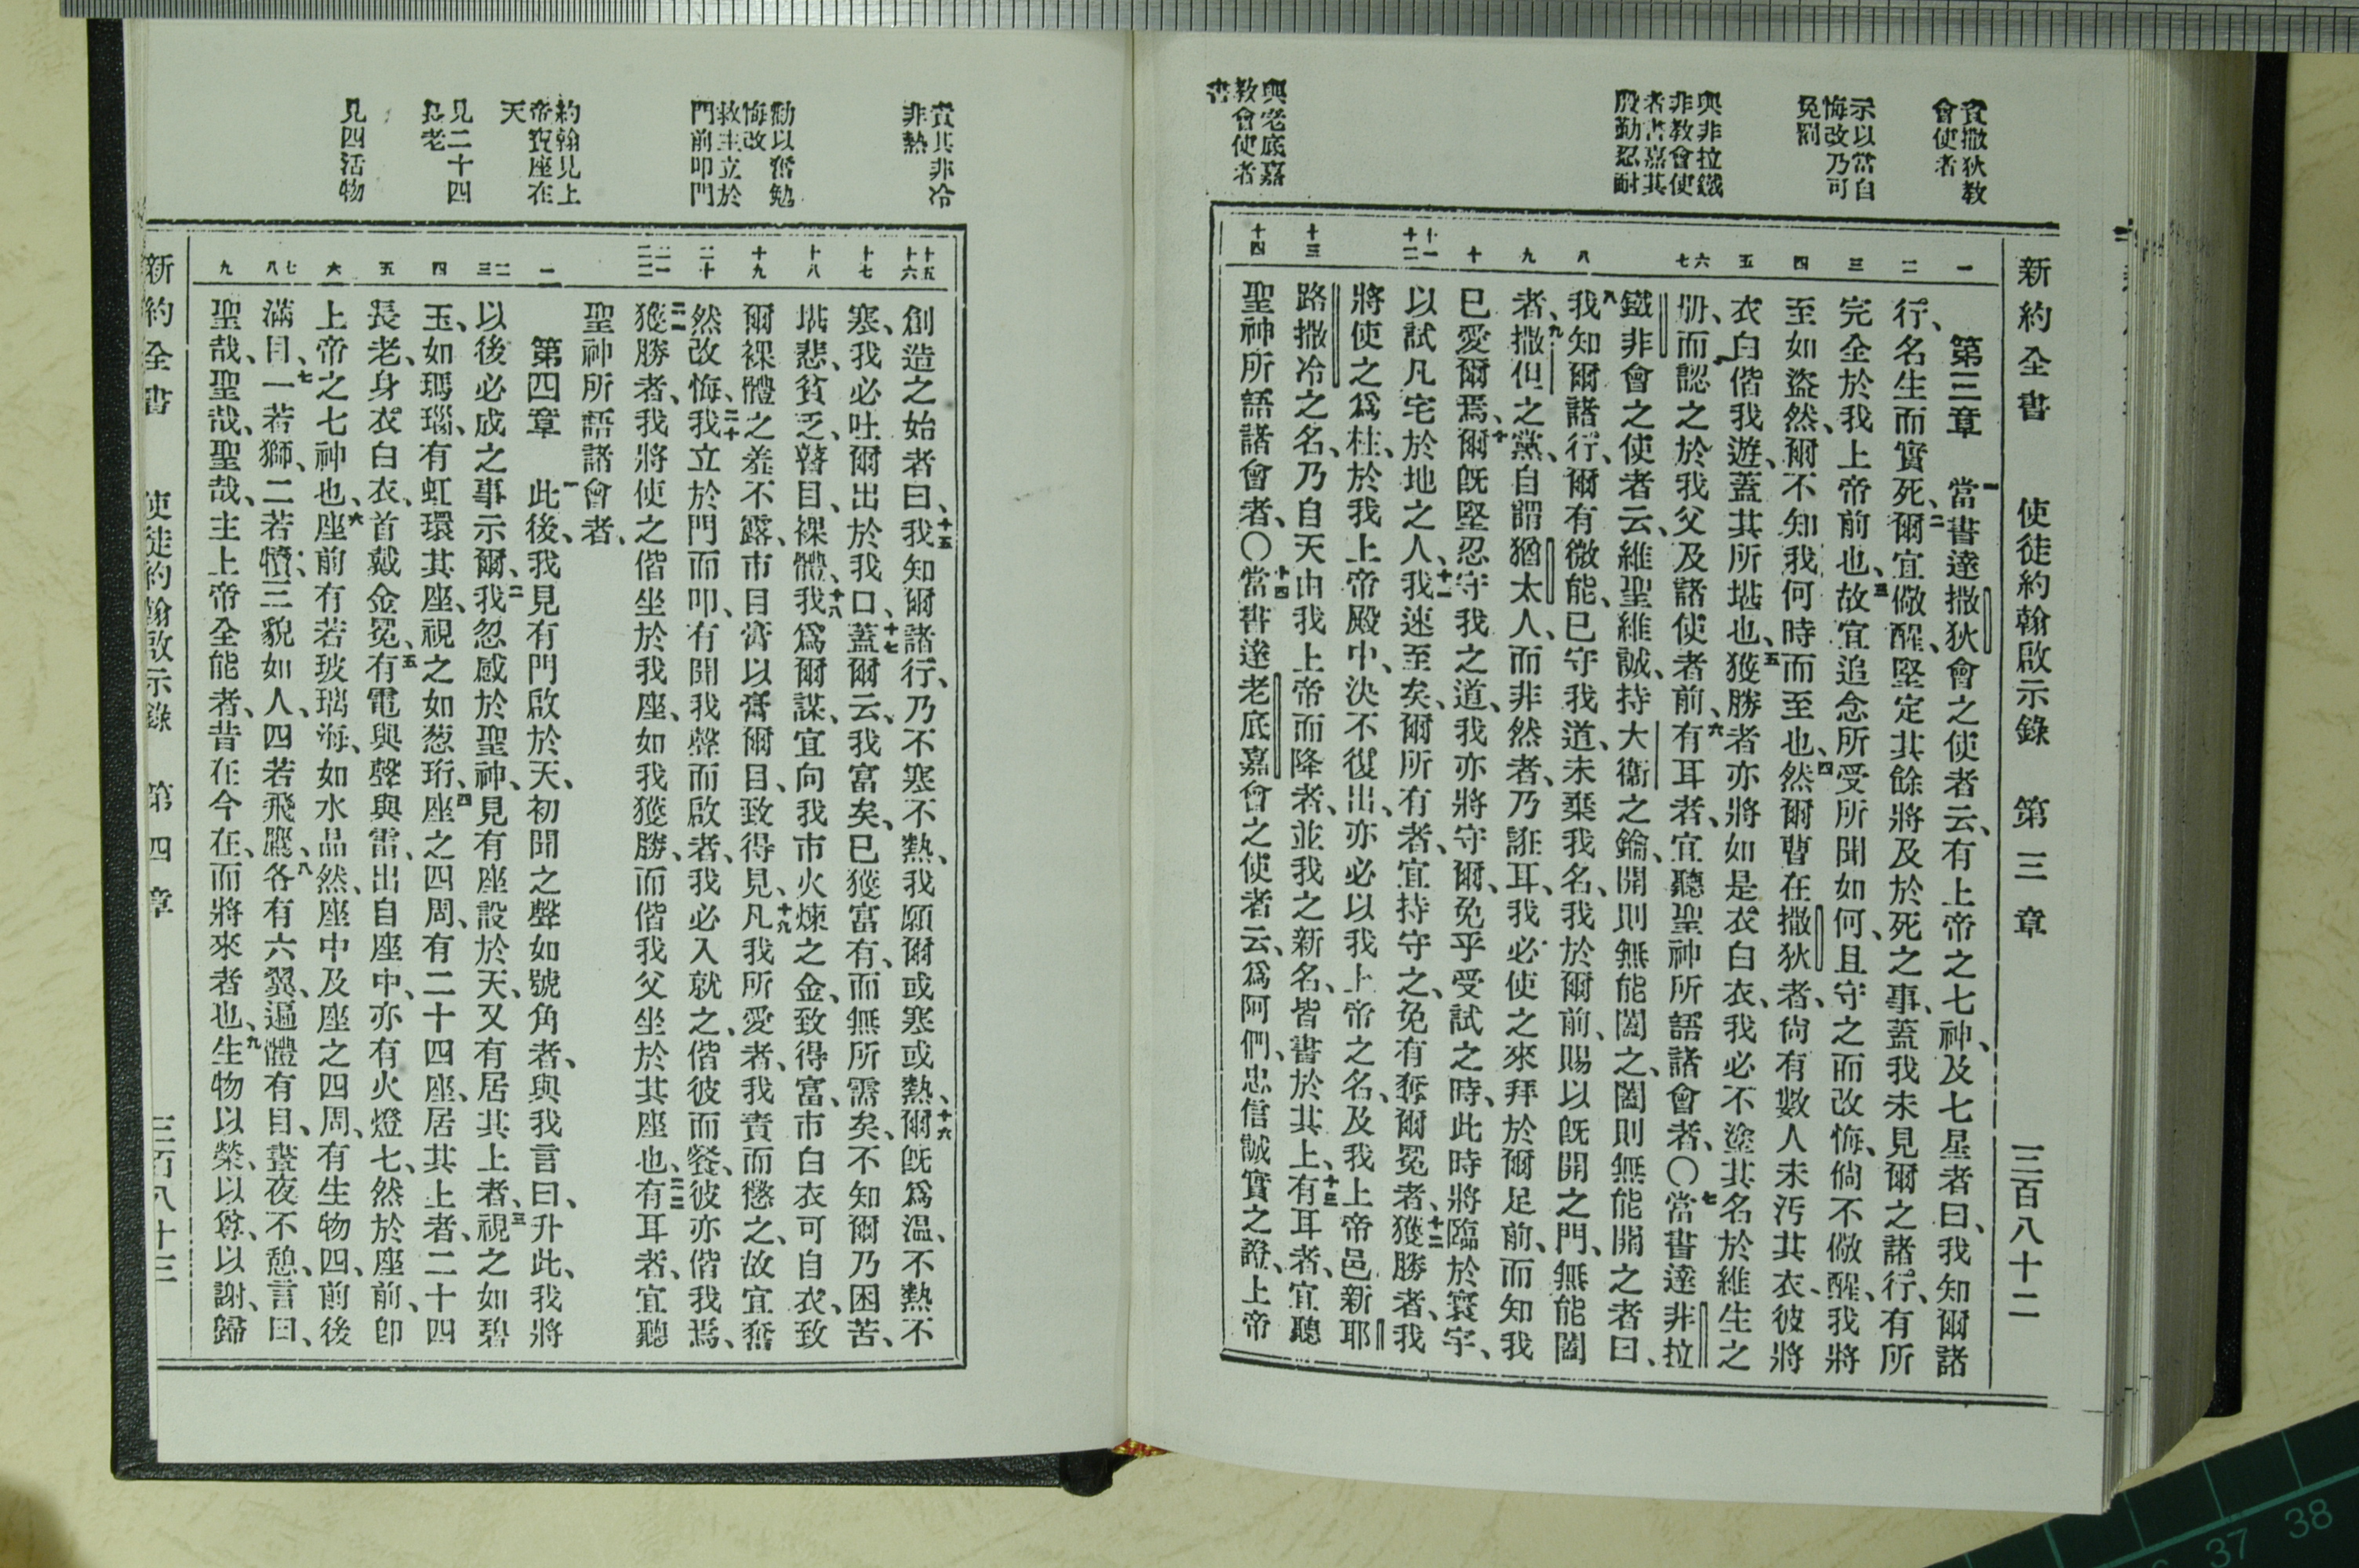 新約全書　使徒約翰啟示錄　第三章　三百八十二
責撒狄教
會使者
示以當自
悔改乃可
免罰
與非拉鐵
非教會使
者書嘉其
殷勤忍耐
與老底嘉
教會使者
書
一
二
三
四
五
六
七
八
九
十
十一
十二
十三
十四
第三章　一當書達撒狄會之使者云、有上帝之七神、及七星者曰、我知爾諸
行、名生而實死、二爾宜儆醒、堅定其餘將及於死之事、蓋我未見爾之諸行、有所
完全於我上帝前也、三故宜追念所受所聞如何、且守之而改悔、倘不儆醒、我將
至如盜然、爾不知我何時而至也、四然爾曹在撒狄者、尙有數人未污其衣、彼將
衣白偕我遊、蓋其所堪也、五獲勝者亦將如是衣白衣、我必不塗其名於維生之
册、而認之於我父及諸使者前、六有耳者、宜聽聖神所語諸會者、〇七當書達非拉
鐵非會之使者云、維聖維誠、持大衞之鑰、開則無能闔之、闔則無能開之者曰、
八我知爾諸行、爾有微能、已守我道、未棄我名、我於爾前、賜以旣開之門、無能闔
者、九撒但之黨、自謂猶太人、而非然者、乃誑耳、我必使之來拜於爾足前、而知我
已愛爾焉、十爾旣堅忍守我之道、我亦將守爾、免乎受試之時、此時將臨於寰宇、
以試凡宅於地之人、十一我速至矣、爾所有者、宜持守之、免有奪爾冕者、十二獲勝者、我
將使之爲柱、於我上帝殿中、決不復出、亦必以我上帝之名、及我上帝邑新耶
路撒冷之名、乃自天由我上帝而降者、並我之新名、皆書於其上、十三有耳者、宜聽
聖神所語諸會者、〇十四當書達老底嘉會之使者云、爲阿們、忠信誠實之證、上帝
責其非冷
非熱
勸以奮勉
悔改
救主立於
門前叩門
約翰見上
帝寶座在
天
見二十四
長老
見四活物
十五
十六
十七
十八
十九
二十
二一
二二
一
二
三
四
五
六
七
八
九
創造之始者曰、十五我知爾諸行、乃不寒不熱、我願爾或寒或熱、十六爾旣爲温、不熱不
寒、我必吐爾出於我口、十七蓋爾云、我富矣、已獲富有、而無所需矣、不知爾乃困苦、
堪悲、貧乏、瞽目、裸體、十八我爲爾謀、宜向我市火煉之金、致得富、市白衣可自衣、致
爾裸體之羞不露、市目膏以膏爾目、致得見、十九凡我所愛者、我責而懲之、故宜奮
然改悔、二十我立於門而叩、有聞我聲而啟者、我必入就之、偕彼而餐、彼亦偕我焉、
二一獲勝者、我將使之偕坐於我座、如我獲勝、而偕我父坐於其座也、二二有耳者、宜聽
聖神所語諸會者、
第四章　一此後、我見有門啟於天、初聞之聲如號角者、與我言曰、升此、我將
以後必成之事示爾、二我忽感於聖神、見有座設於天、又有居其上者、三視之如碧
玉、如瑪瑙、有虹環其座、視之如葱珩、四座之四周、有二十四座、居其上者、二十四
長老、身衣白衣、首戴金冕、五有電與聲與雷、出自座中、亦有火燈七、然於座前、卽
上帝之七神也、六座前有若玻璃海、如水晶然、座中及座之四周、有生物四、前後
滿目、七一若獅、二若犢、三貌如人、四若飛鷹、八各有六翼、遍體有目、晝夜不憩、言曰、
聖哉、聖哉、聖哉、主上帝全能者、昔在今在、而將來者也、九生物以榮、以尊、以謝、歸
新約全書　使徒約翰啟示錄　第四章　三百八十三
37
38